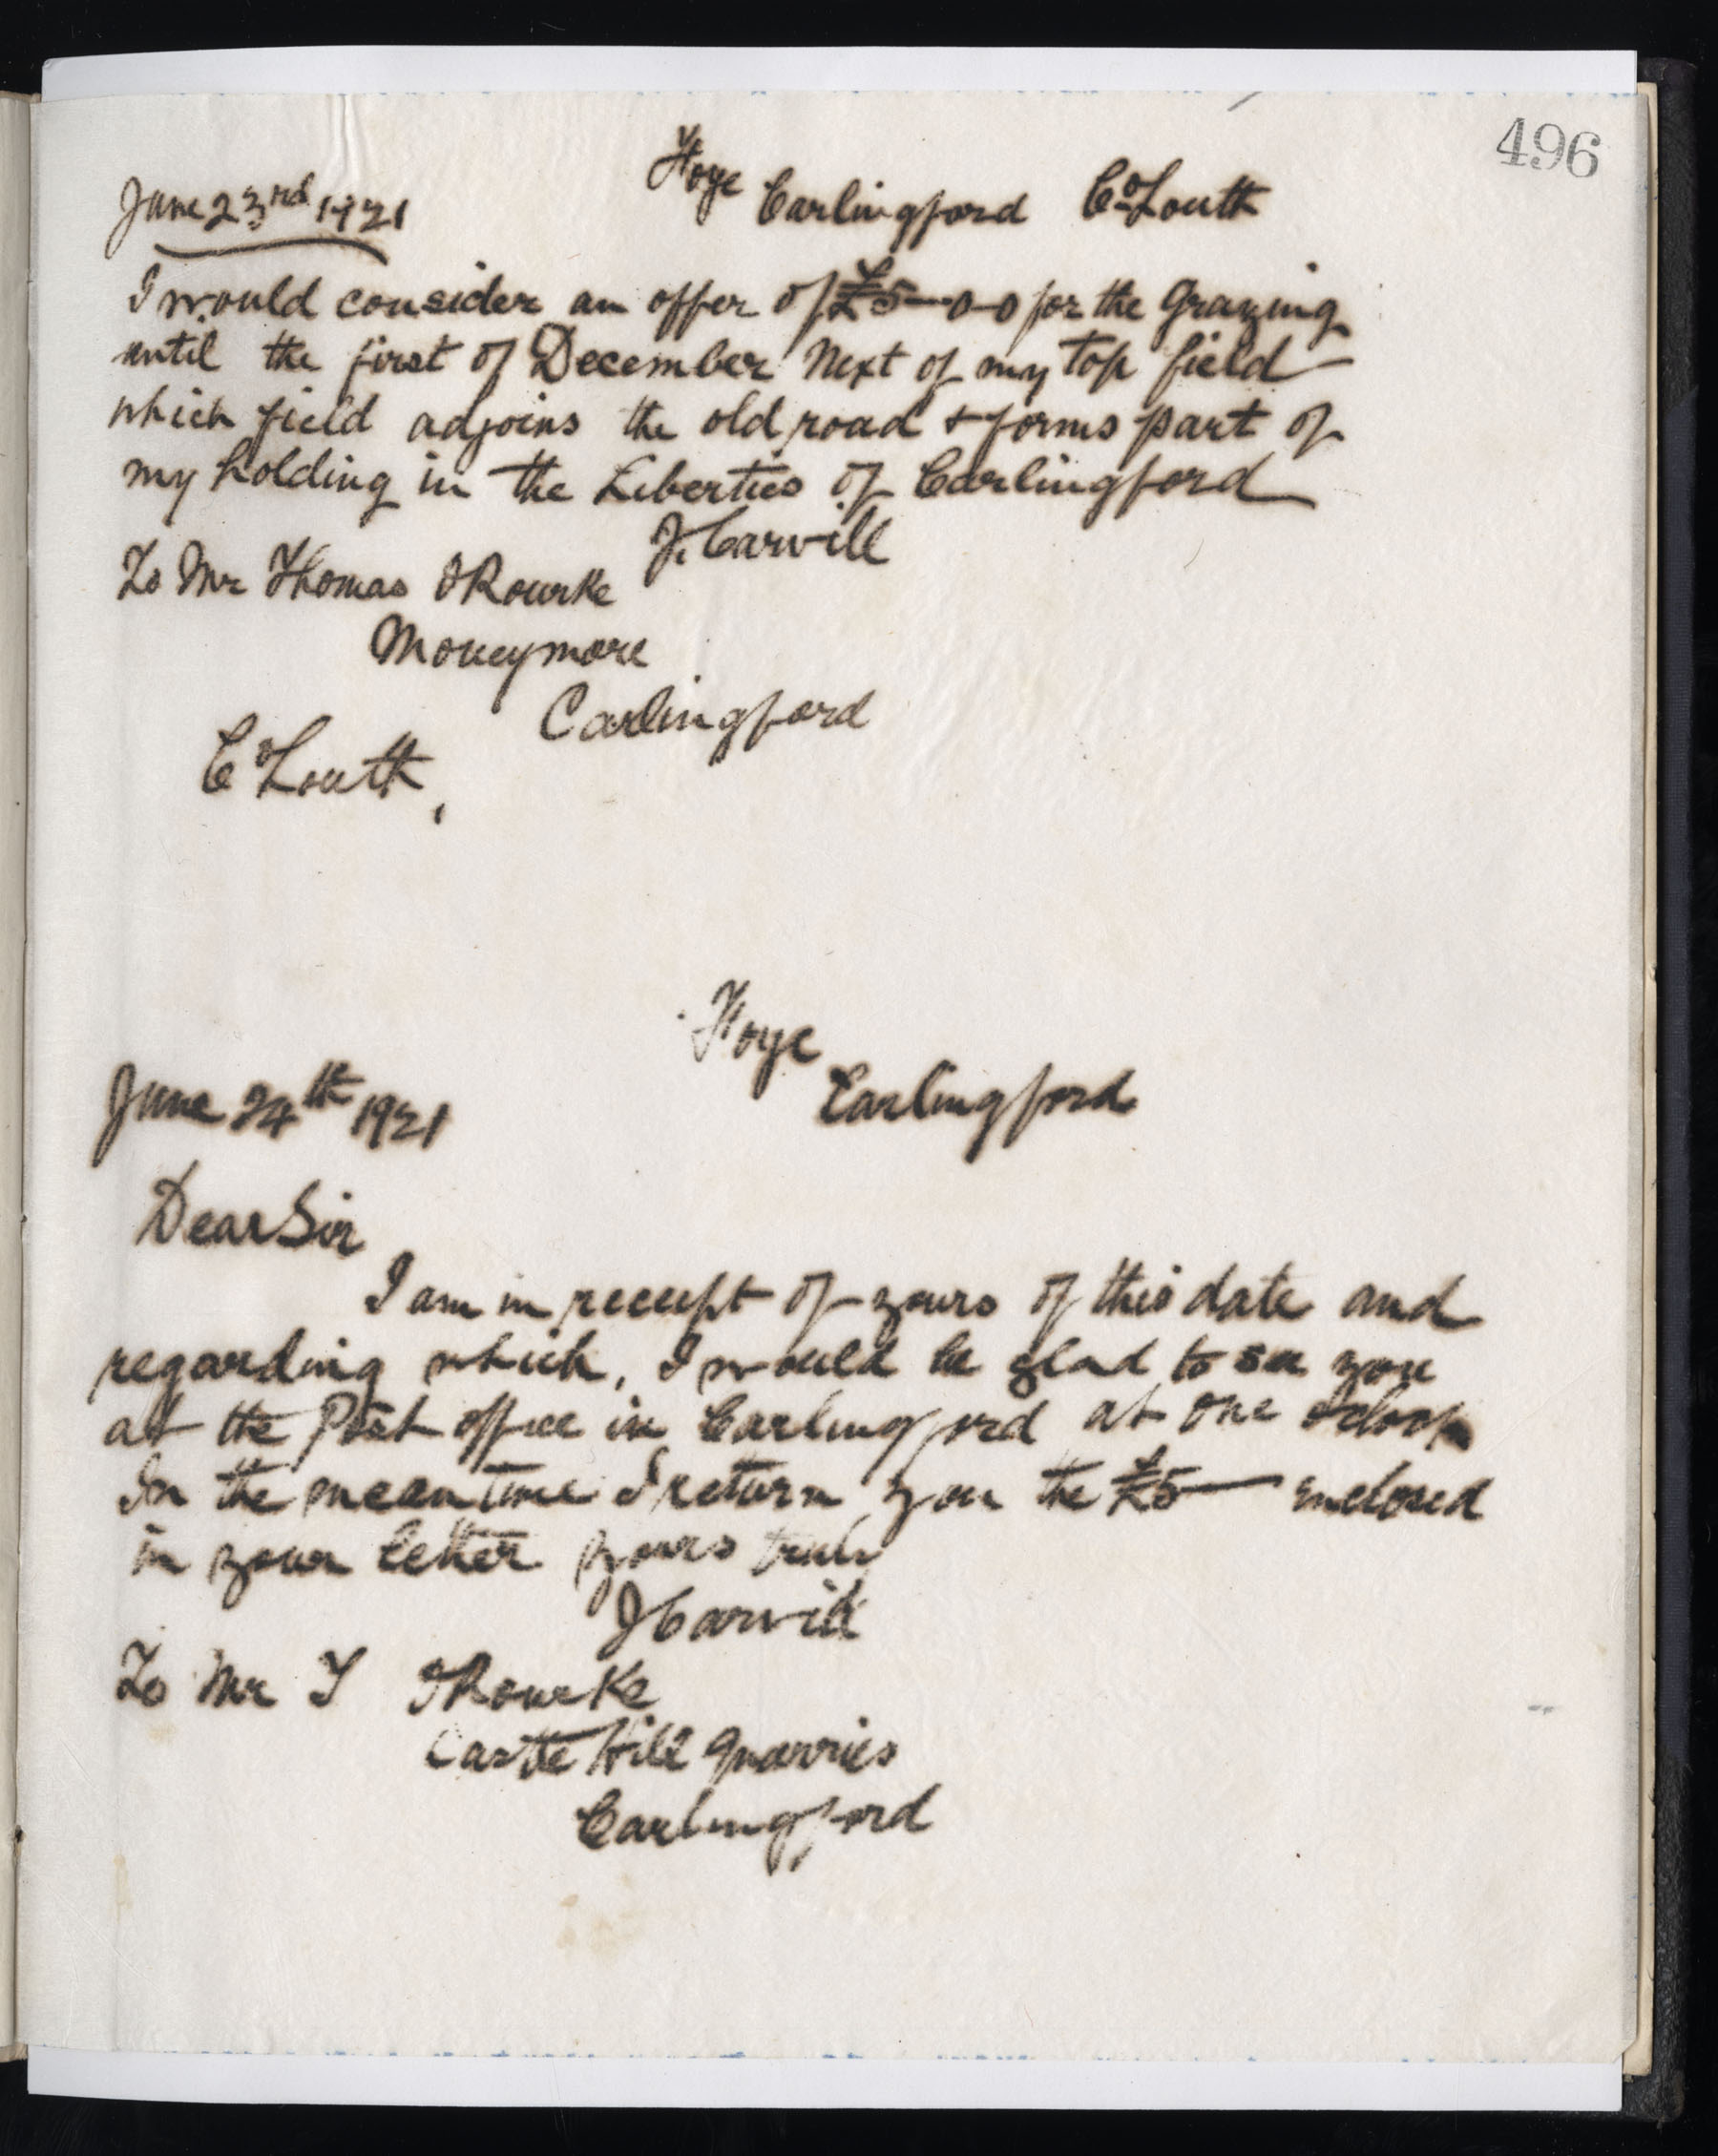 496
Foye Carlingford Co Louth
June 23rd 1921
I would consider an offer of £5-0-0 for the Grazing
until the first of December Next of my top field
which field adjoins the old road & forms part of
my holding in the Liberties of Carlingford
J. Carvill
To Mr Thomas O'Rourke
Moneymore
Carlingford
Co Louth,
Foye
Carlingford
June 24th 1921
Dear Sir
I am in receipt of yours of this date and
regarding which, I would be glad to see you
at the Post office in Carlingford at one oclock
In the meantime I return you the £5 enclosed
in your letter yours truly
J Carvill
To Mr T ORourke
Castle Hill Quarries
Carlingford